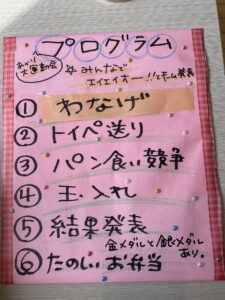 プログラム
あかり
大運動会
☆みんなで
エイエイオー!!とチーム発表
① わなげ
② トイペ送り
③ パン食い競争
④ 玉入れ
⑤ 結果発表
金メダルと銀メダル
あり。
⑥ たのしいお弁当